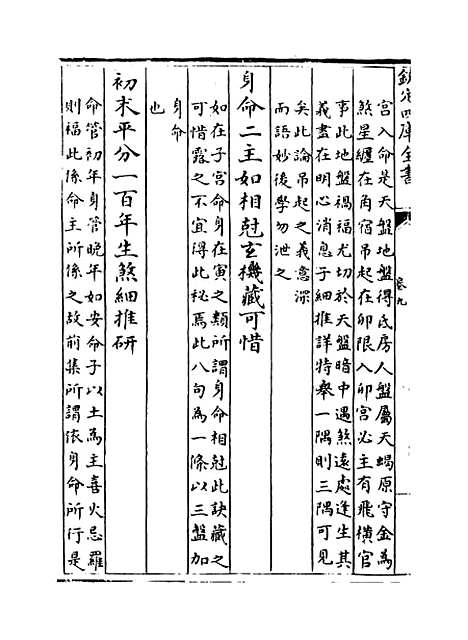 欽定四庫全書
卷九
宮入命是天盤地盤得氐房人盤屬天蝎原守金為
煞星纒在角宿吊起在卯限入卯宮必主有飛橫官
事此地盤禍福尤切於天盤暗中遇煞遠處逢生其
義盡在明心消息子細推詳特舉一隅則三隅可見
矣此論吊起之義意深
而語妙後學勿泄之
身命二主如相尅玄機藏可惜
如在子宮命身在寅之類所謂身命相尅此訣藏之
可惜露之不宜得此秘焉此八句為一條以三盤加
身命
也
初末平分一百年生煞細推研
命管初年身管晚年如安命子以土為主喜火忌羅
則福此係命主所係之故前集所謂依身命所行是